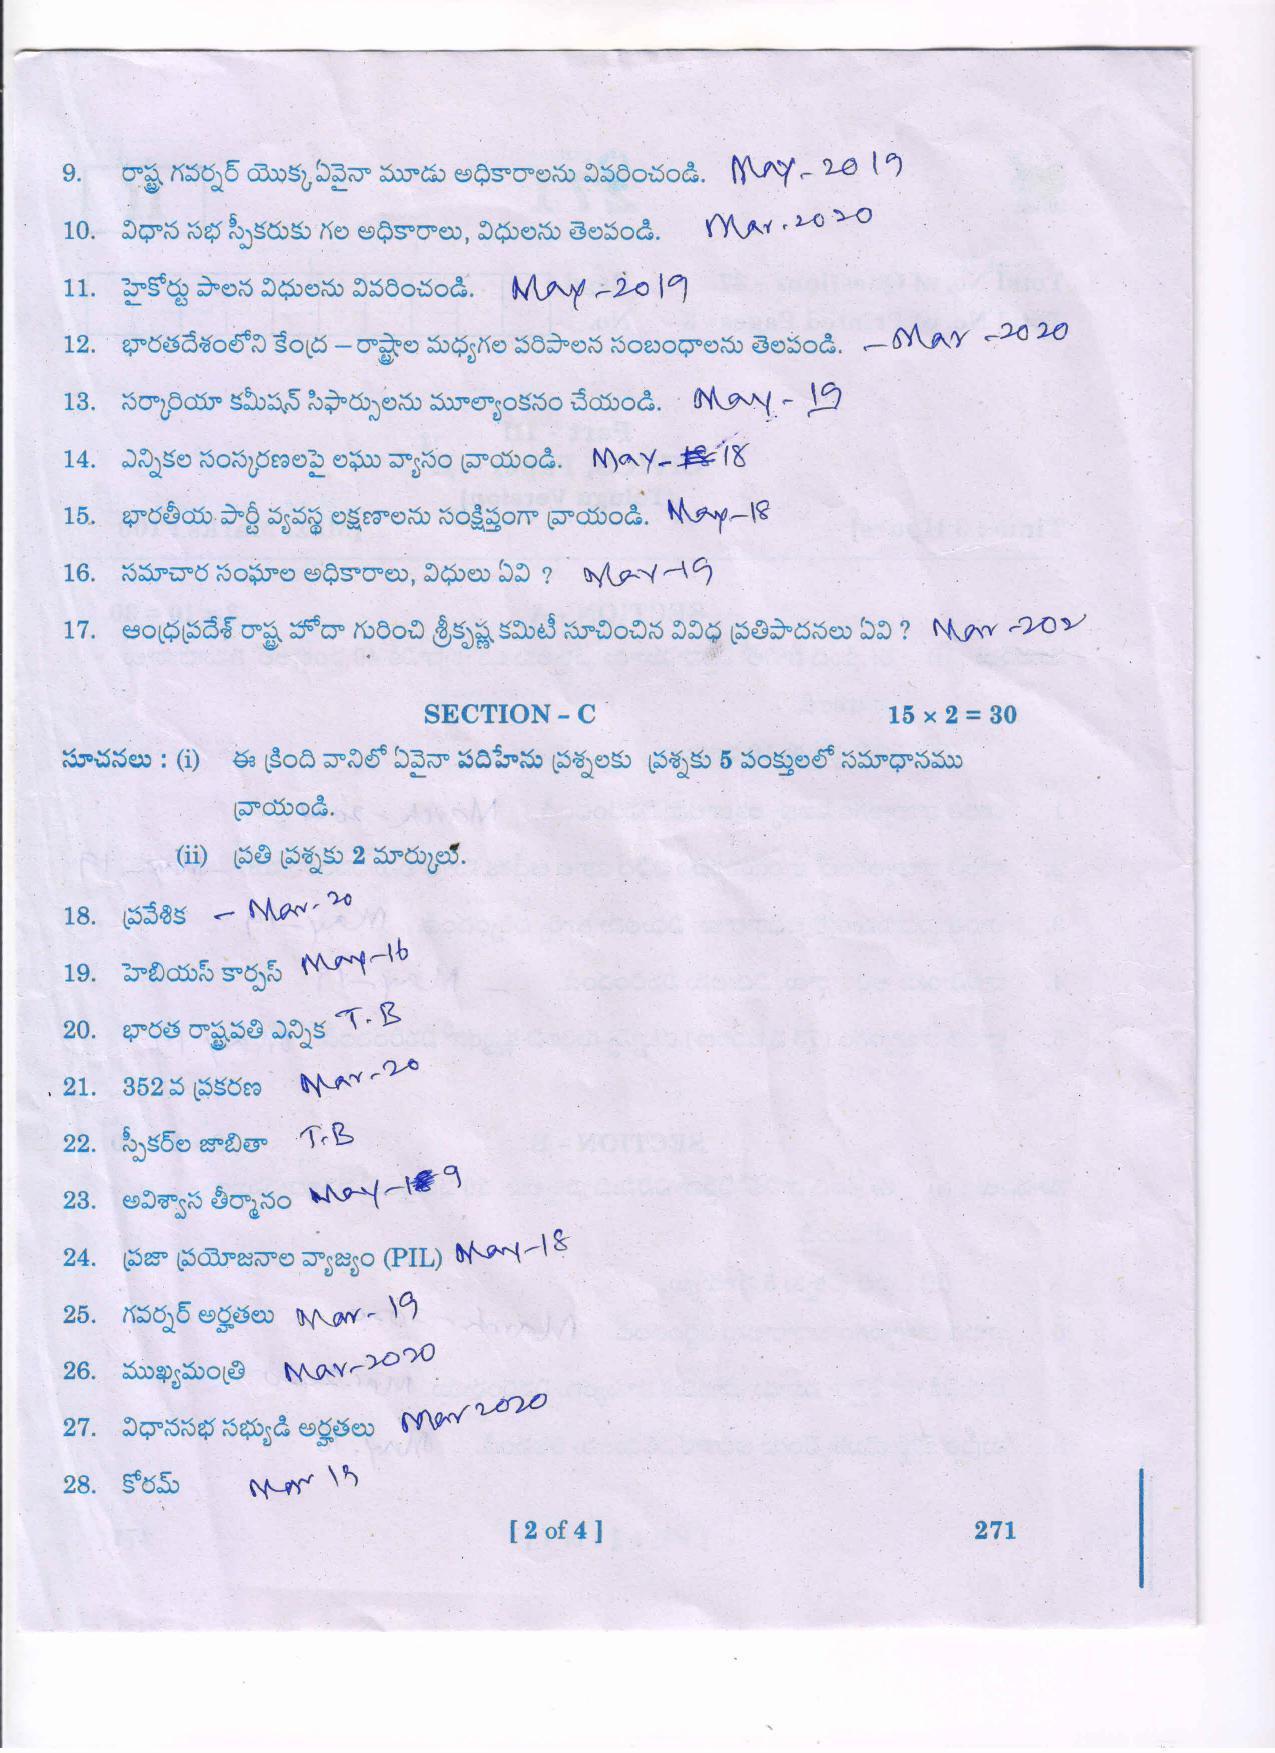 9. రాష్ట్ర గవర్నర్ యొక్క ఏవైనా మూడు అధికారాలను వివరించండి. May-2019
10. విధాన సభ స్పీకరుకు గల అధికారాలు, విధులను తెలపండి. Mar.2020
11. హైకోర్టు పాలన విధులను వివరించండి. May-2019
12. భారతదేశంలోని కేంద్ర – రాష్ట్రాల మధ్యగల పరిపాలన సంబంధాలను తెలపండి. -Mar-2020
13. సర్కారియా కమీషన్ సిఫార్సులను మూల్యాంకనం చేయండి. May-19
14. ఎన్నికల సంస్కరణలపై లఘు వ్యాసం వ్రాయండి. May-18
15. భారతీయ పార్టీ వ్యవస్థ లక్షణాలను సంక్షిప్తంగా వ్రాయండి. May-18
16. సమాచార సంఘాల అధికారాలు, విధులు ఏవి ? May-19
17. ఆంధ్రప్రదేశ్ రాష్ట్ర హోదా గురించి శ్రీకృష్ణ కమిటీ సూచించిన వివిధ ప్రతిపాదనలు ఏవి ? Mar-202
SECTION – C 15 × 2 = 30
సూచనలు : (i) ఈ క్రింది వానిలో ఏవైనా పదిహేను ప్రశ్నలకు ప్రశ్నకు 5 పంక్తులలో సమాధానము
వ్రాయండి.
(ii) ప్రతి ప్రశ్నకు 2 మార్కులు.
18. ప్రవేశిక - Mar-20
19. హెబియస్ కార్పస్ May-16
20. భారత రాష్ట్రపతి ఎన్నిక T.B
21. 352 వ ప్రకరణ Mar-20
22. స్పీకర్‌ల జాబితా T.B
23. అవిశ్వాస తీర్మానం May-19
24. ప్రజా ప్రయోజనాల వ్యాజ్యం (PIL) May-18
25. గవర్నర్ అర్హతలు Mar-19
26. ముఖ్యమంత్రి Mar-2020
27. విధానసభ సభ్యుడి అర్హతలు Mar 2020
28. కోరమ్ Mar 19
[ 2 of 4 ] 271